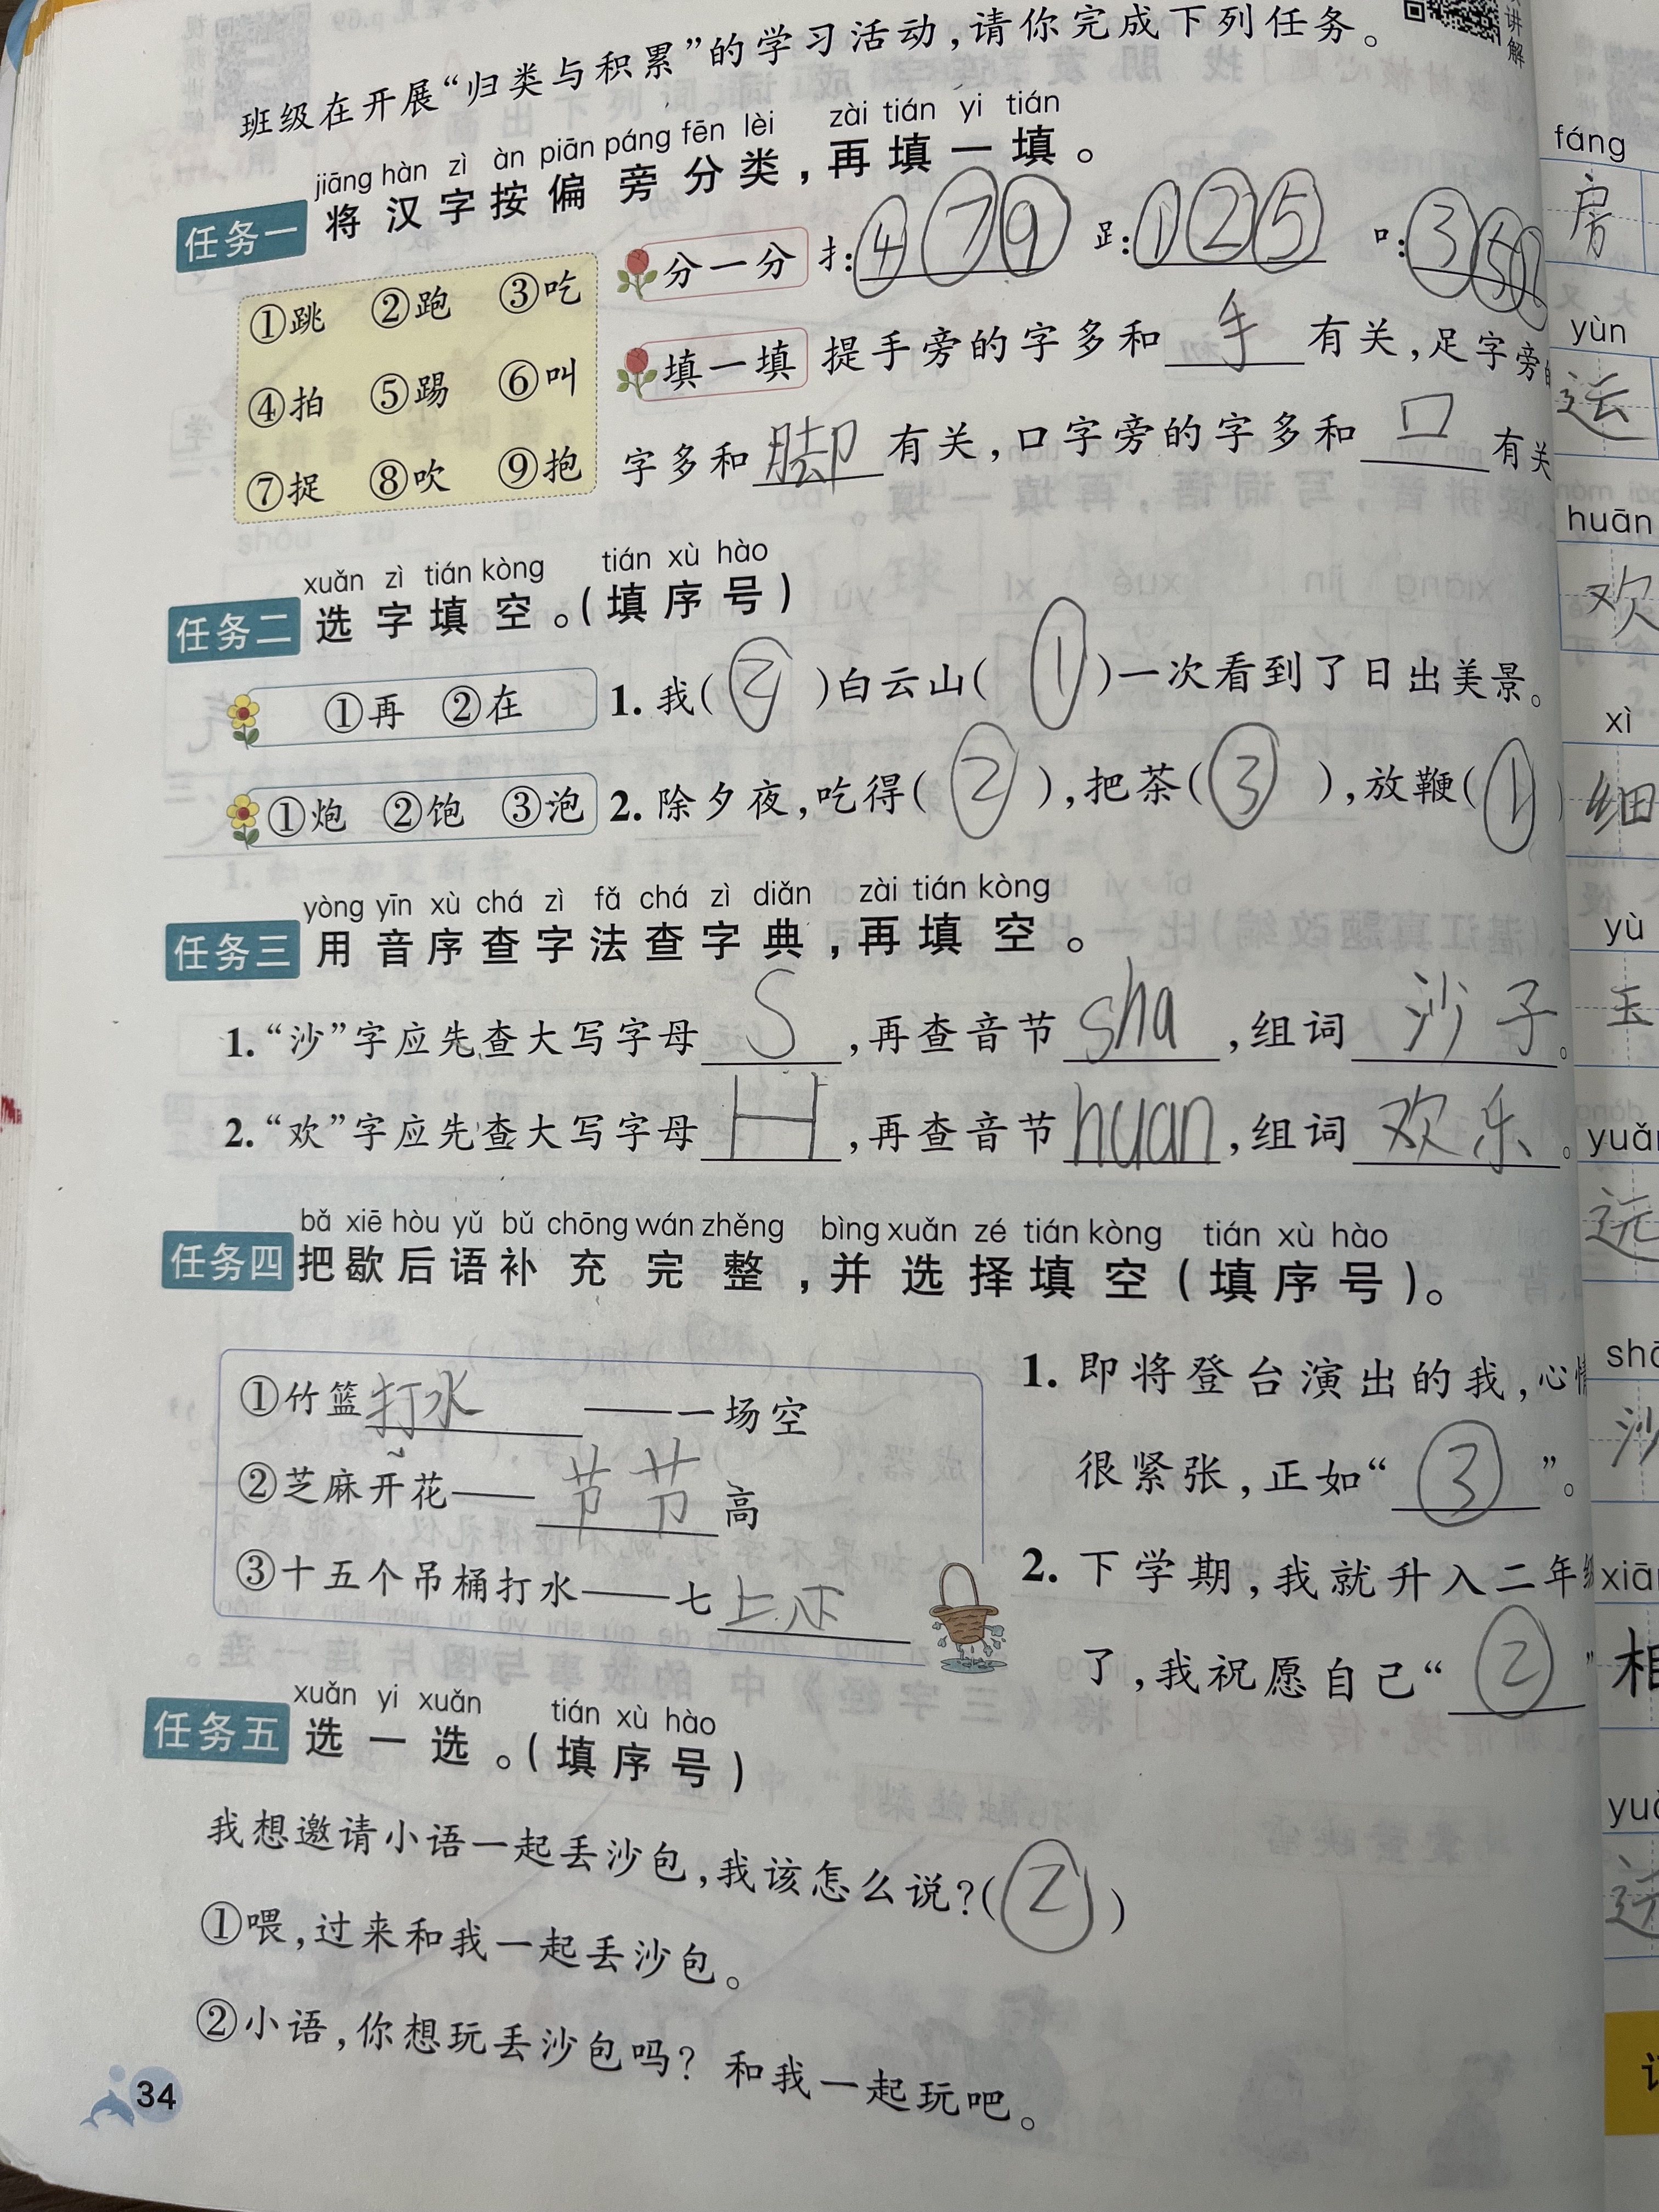 讲解
班级在开展“归类与积累”的学习活动,请你完成下列任务。
jiāng hàn zì àn piān páng fēn lèi zài tián yi tián
任务一 将汉字按偏旁分类,再填一填。
①跳 ②跑 ③吃
④拍 ⑤踢 ⑥叫
⑦捉 ⑧吹 ⑨抱
分一分 扌:④⑦⑨ ⻊:①②⑤ 口:③
填一填 提手旁的字多和手有关,足字旁
字多和脚有关,口字旁的字多和口有关
xuǎn zì tián kòng tián xù hào
任务二 选字填空。(填序号)
①再 ②在 1. 我(②)白云山(①)一次看到了日出美景。
①炮 ②饱 ③泡 2. 除夕夜,吃得(②),把茶(③),放鞭(①)
yòng yīn xù chá zì fǎ chá zì diǎn zài tián kòng
任务三 用音序查字法查字典,再填空。
1. “沙”字应先查大写字母S,再查音节sha,组词沙子。
2. “欢”字应先查大写字母H,再查音节huan,组词欢乐。
bǎ xiē hòu yǔ bǔ chōng wán zhěng bìng xuǎn zé tián kòng tián xù hào
任务四 把歇后语补充完整,并选择填空(填序号)。
①竹篮打水——一场空
②芝麻开花——节节高
③十五个吊桶打水——七上八下
1. 即将登台演出的我,心情
很紧张,正如“③”。
2. 下学期,我就升入二年级
了,我祝愿自己“②”
xuǎn yi xuǎn tián xù hào
任务五 选一选。(填序号)
我想邀请小语一起丢沙包,我该怎么说?(②)
①喂,过来和我一起丢沙包。
②小语,你想玩丢沙包吗?和我一起玩吧。
34
fáng
房
yùn
运
huān
欢
xì
细
yù
玉
yuǎ
远
shā
沙
xiā
相